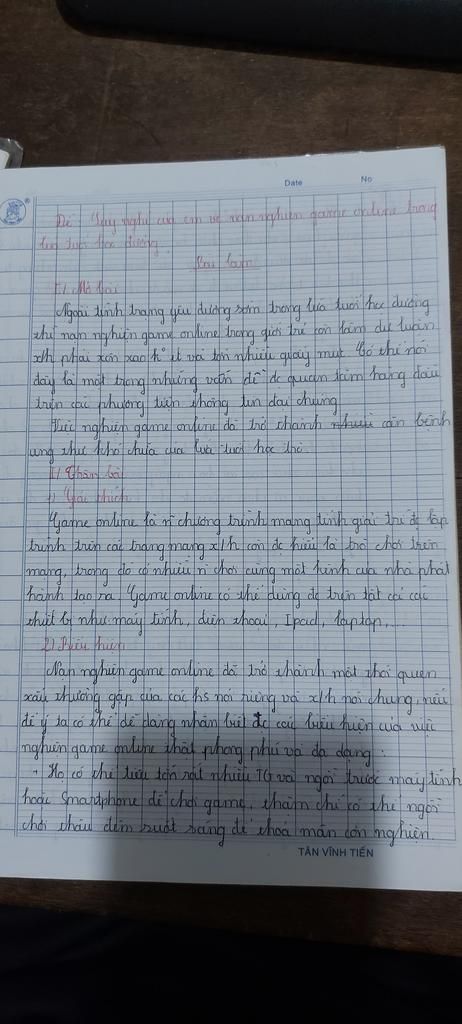 Date No
Đề Suy nghĩ của em về nạn nghiện game online trong
lứa tuổi học đường.
Bài làm
I/ Mở bài
Ngoài tình trạng yêu đương sớm trong lứa tuổi học đường
thì nạn nghiện game online trong giới trẻ còn làm dư luận
x/h phải xôn xao k ít và tốn nhiều giấy mực. Có thể nói
đây là một trong những vấn đề đc quan tâm hàng đầu
trên các phương tiện thông tin đại chúng
Việc nghiện game online đã trở thành nhiều căn bệnh
ung thư khó chữa của lứa tuổi học trò.
II/ Thân bài
1) Giải thích
Game online là n chương trình mang tính giải trí đc lập
trình trên các trang mạng x/h còn đc hiểu là trò chơi trên
mạng, trong đó có nhiều n chơi cùng một hình của nhà phát
hành tạo ra. Game online có thể dùng đc trên tất cả các
thiết bị như máy tính, điện thoại, Ipad, laptap,...
2) Biểu hiện
Nạn nghiện game online đã trở thành một thói quen
xấu thường gặp của các hs nói riêng và x/h nói chung, nếu
để ý ta có thể dễ dàng nhận biết đc các biểu hiện của việc
nghiện game online thật phong phú và đa dạng:
+ Họ có thể tiêu tốn rất nhiều TG và ngồi trước máy tính
hoặc Smartphone để chơi game, thậm chí có thể ngồi
chơi thâu đêm suốt sáng để thoả mãn cơn nghiện.
TÂN VĨNH TIẾN